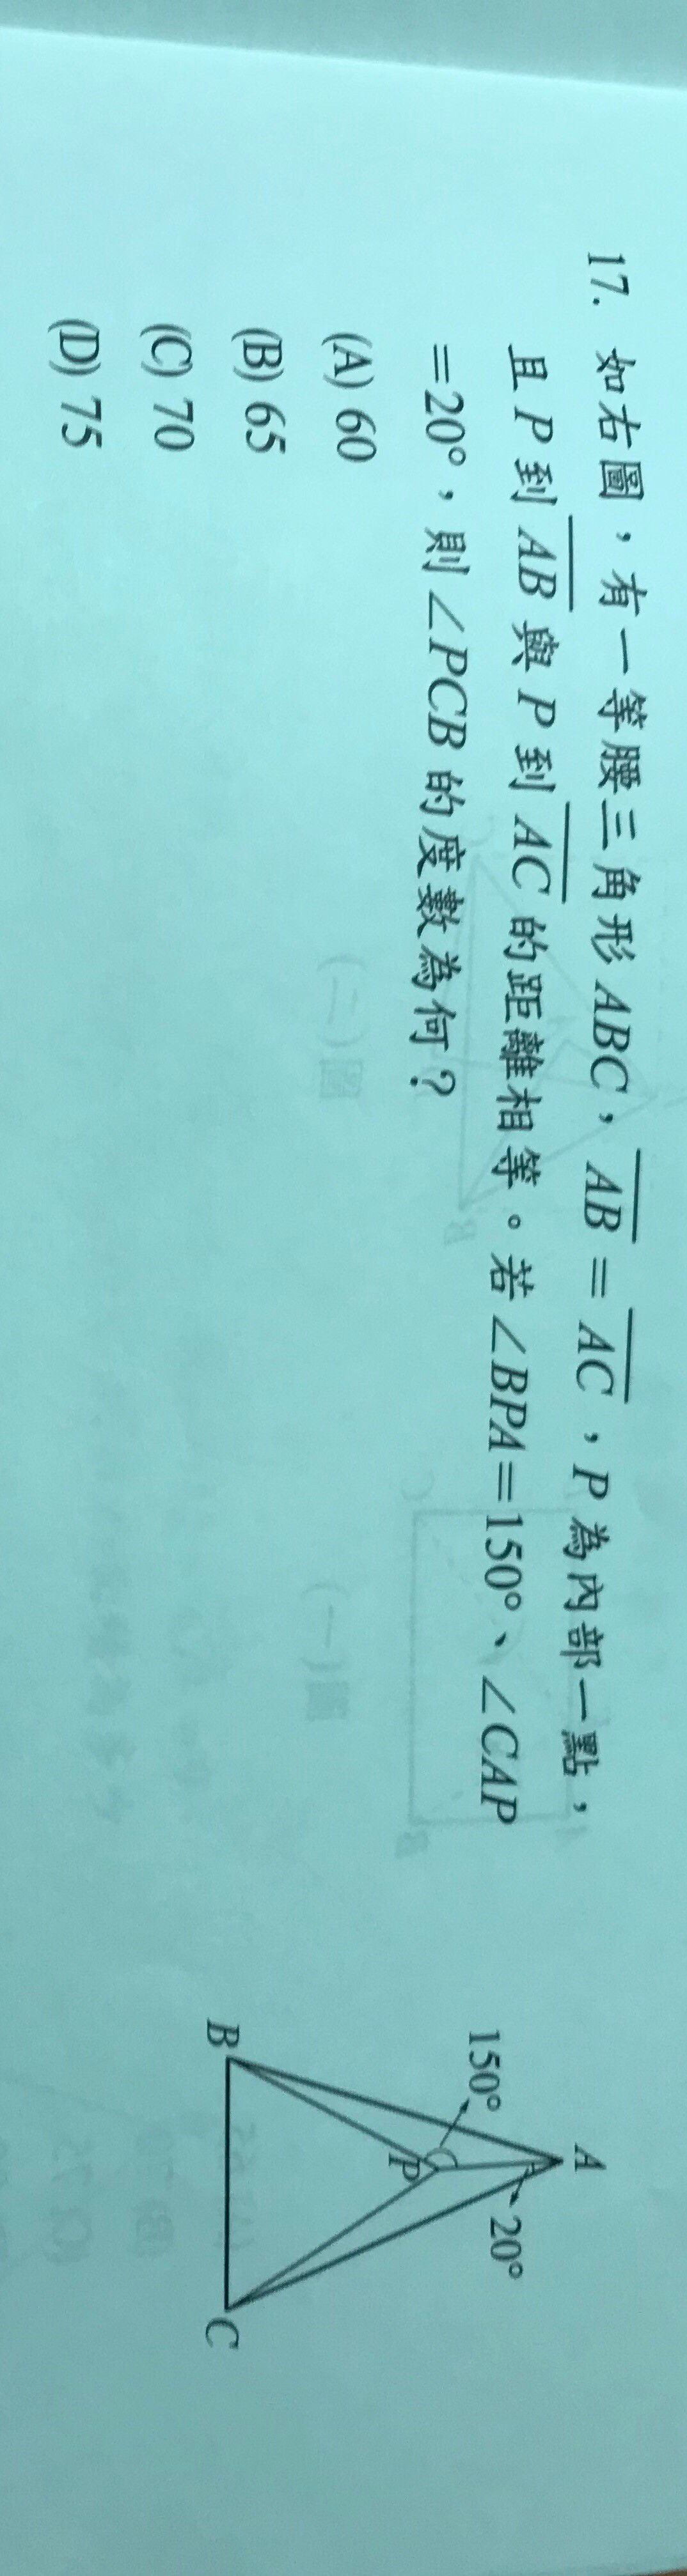 17. 如右圖，有一等腰三角形 ABC，AB = AC，P 為內部一點，
且 P 到 AB 與 P 到 AC 的距離相等。若∠BPA=150°、∠CAP
=20°，則∠PCB 的度數為何？
(A) 60
(B) 65
(C) 70
(D) 75
A
20°
150°
P
B
C